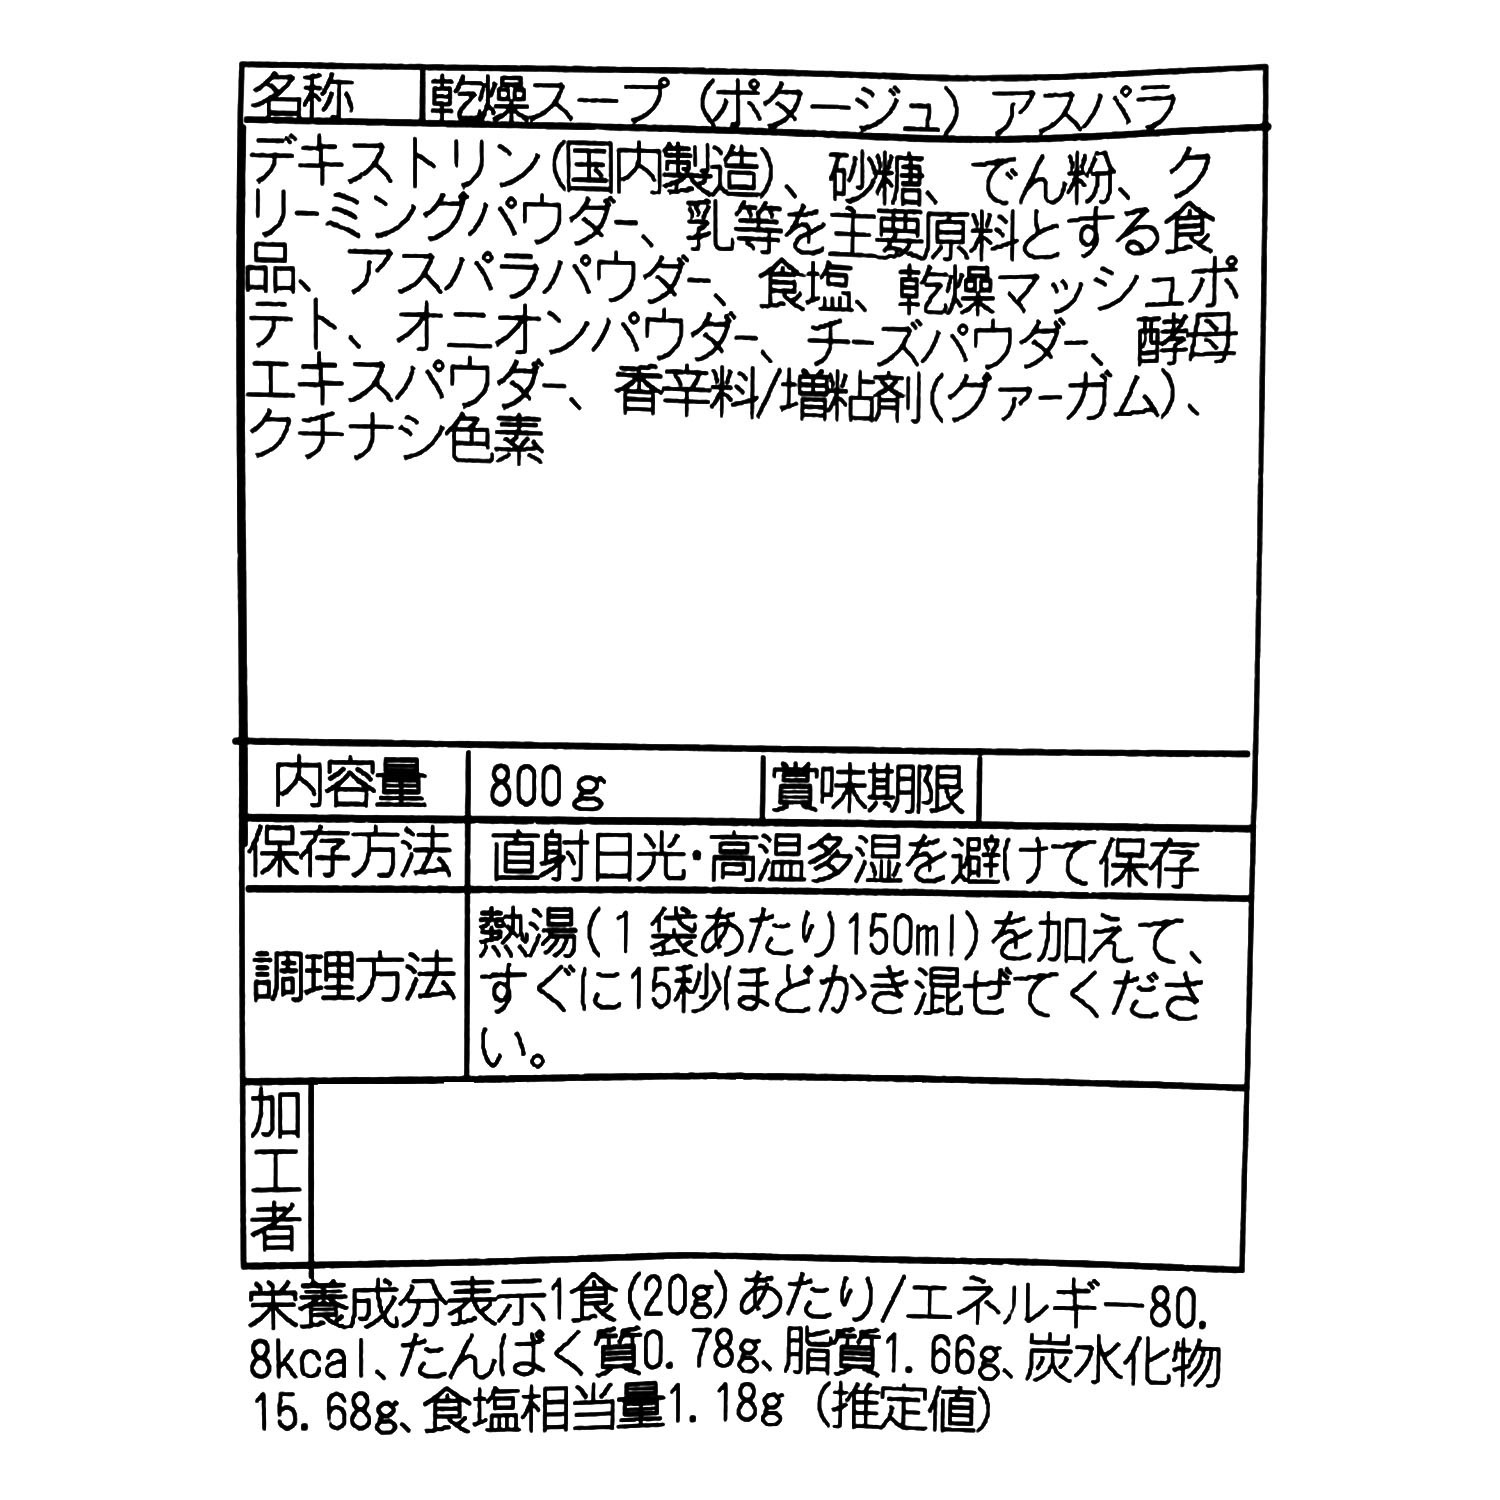 名称 乾燥スープ（ポタージュ）アスパラ
デキストリン(国内製造)、砂糖、でん粉、ク
リーミングパウダー、乳等を主要原料とする食
品、アスパラパウダー、食塩、乾燥マッシュポ
テト、オニオンパウダー、チーズパウダー、酵母
エキスパウダー、香辛料/増粘剤(グァーガム)、
クチナシ色素
内容量 800g 賞味期限
保存方法 直射日光・高温多湿を避けて保存
調理方法 熱湯(1袋あたり150ml)を加えて、
すぐに15秒ほどかき混ぜてくださ
い。
加工者
栄養成分表示1食(20g)あたり/エネルギー80.
8kcal、たんぱく質0.78g、脂質1.66g、炭水化物
15.68g、食塩相当量1.18g（推定値）